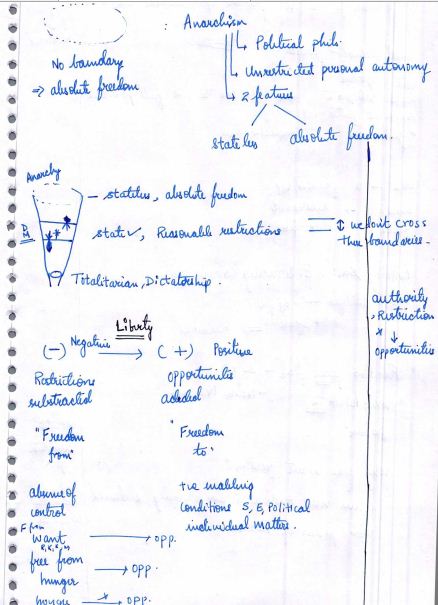 : Anarchism
No boundary
⇒ absolute freedom
↳ Political phil.
↳ Unrestricted personal autonomy
↳ 2 features
stateless absolute freedom.
Anarchy
— stateless, absolute freedom
DM
state✓, Reasonable restrictions
↕ we don't cross
these boundaries.
Totalitarian, Dictatorship.
authority
, Restriction
×
↓
opportunities
Liberty
(−) Negative → (+) Positive
Restrictions
substracted
opportunities
added
"Freedom
from"
"Freedom
to"
absence of
control
+ve enabling
conditions S, E, Political
individual matters.
F from
want → opp.
free from
hunger
→ opp.
→ opp.